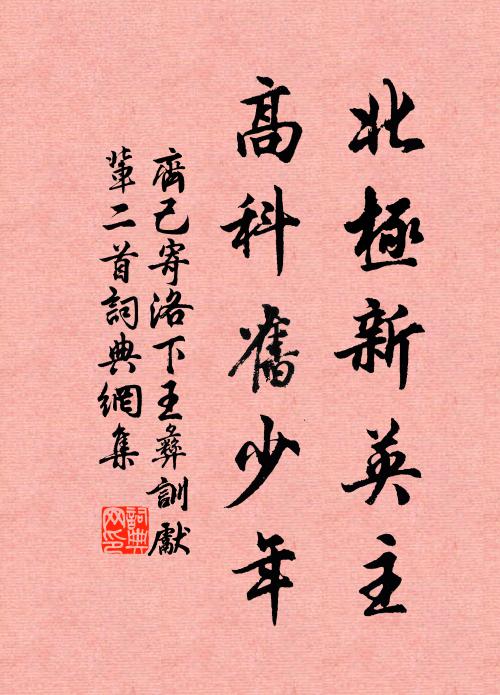 北極新英主
高科舊少年
齊己寄洛下王彝訓獻
輩二首詞典網集
詞典網印